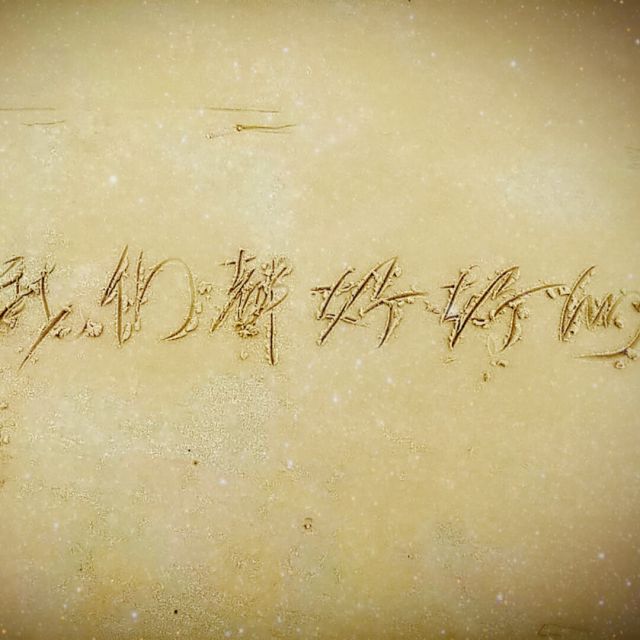 我们都好好的